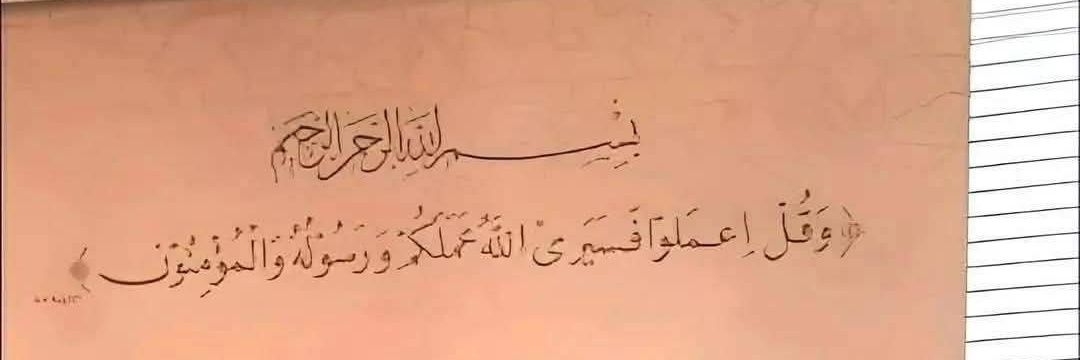 بِسْمِ اللهِ الرَّحْمٰنِ الرَّحِيْمِ
﴿ وَقُلْ اِعْمَلُوْا فَسَيَرَىْ اللّٰهُ عَمَلَكُمْ وَرَسُوْلُهُ وَالْمُؤْمِنُوْنَ ﴾